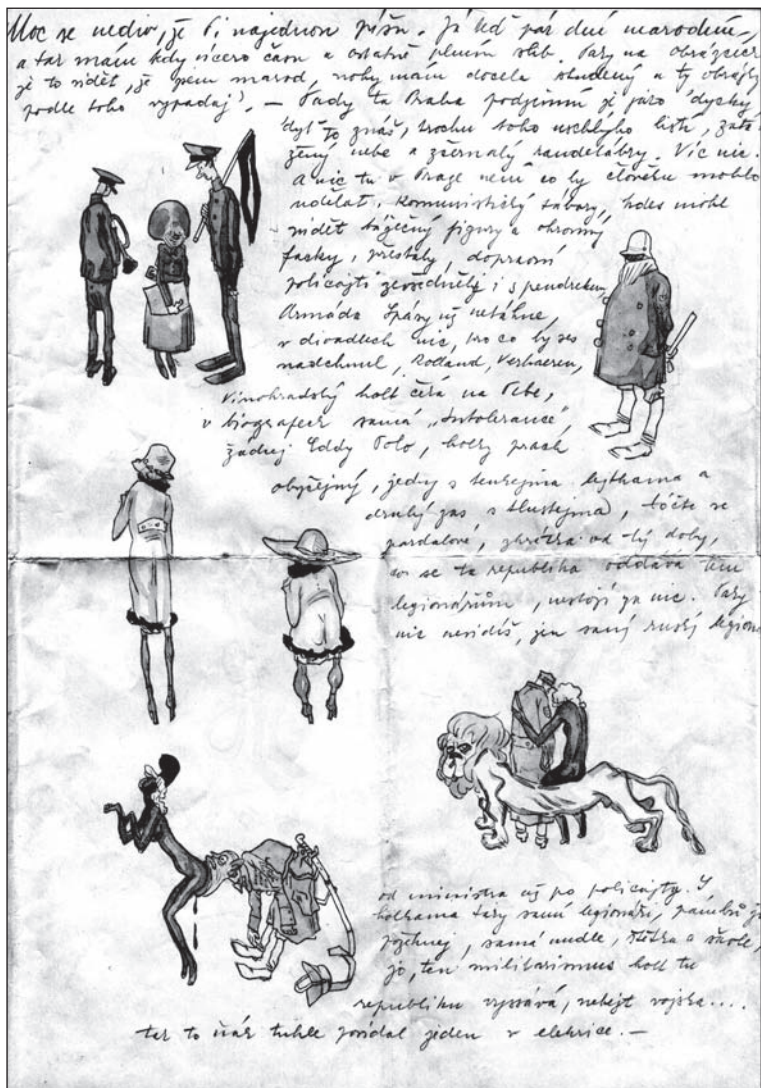 Moc se nediv, že Ti najednou píšu. Já teď pár dní marodím,
a tak mám tedy vícero času a ostatně plním slib. Taky na obrázcích
je to vidět, že jsem marod, nohy mám docela studený a ty obrázky
podle toho vypadaj. — Tady ta Praha podzimní je jako 'dycky,
dyť to znáš, trochu toho uschlýho listí, zata-
žený nebe a zčernalý kandelábry. Víc nic.
A nic tu v Praze není co by člověku mohlo
udělat, komunistický tábory, kdes mohl
vidět báječný figury a ohromný
facky, přestaly, dopravní
policajti zevšedněli i s pendrekem,
Armáda Spásy už netáhne,
v divadlech nic, pro co by ses
nadchnul, Rolland, Verhaeren,
Vinohradský holt čeká na Tebe,
v biografech samá „Intolerance",
žádnej Eddy Polo, holky prach
obyčejný, jedny s tenkejma lejtkama a
druhý zas s tlustejma, točte se
pardálové, zkrátka od tý doby,
co se ta republika oddává těm
legionářům, nestojí za nic. Taky
nic nevidíš, jen samý ruský legion
od ministra až po policajty. S
holkama taky samí legionáři, pámbů je
požehnej, samá nudle, štětka a
jo, ten militarismus holt tu
republiku vyssává, nebejt vojska....
tak to u nás tuhle povídal jeden v elektrice. —